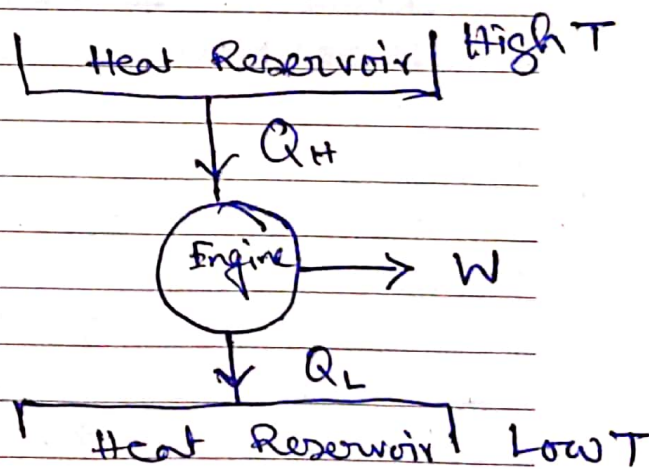 Heat Reservoir High T
Q_H
Engine → W
Q_L
Heat Reservoir Low T